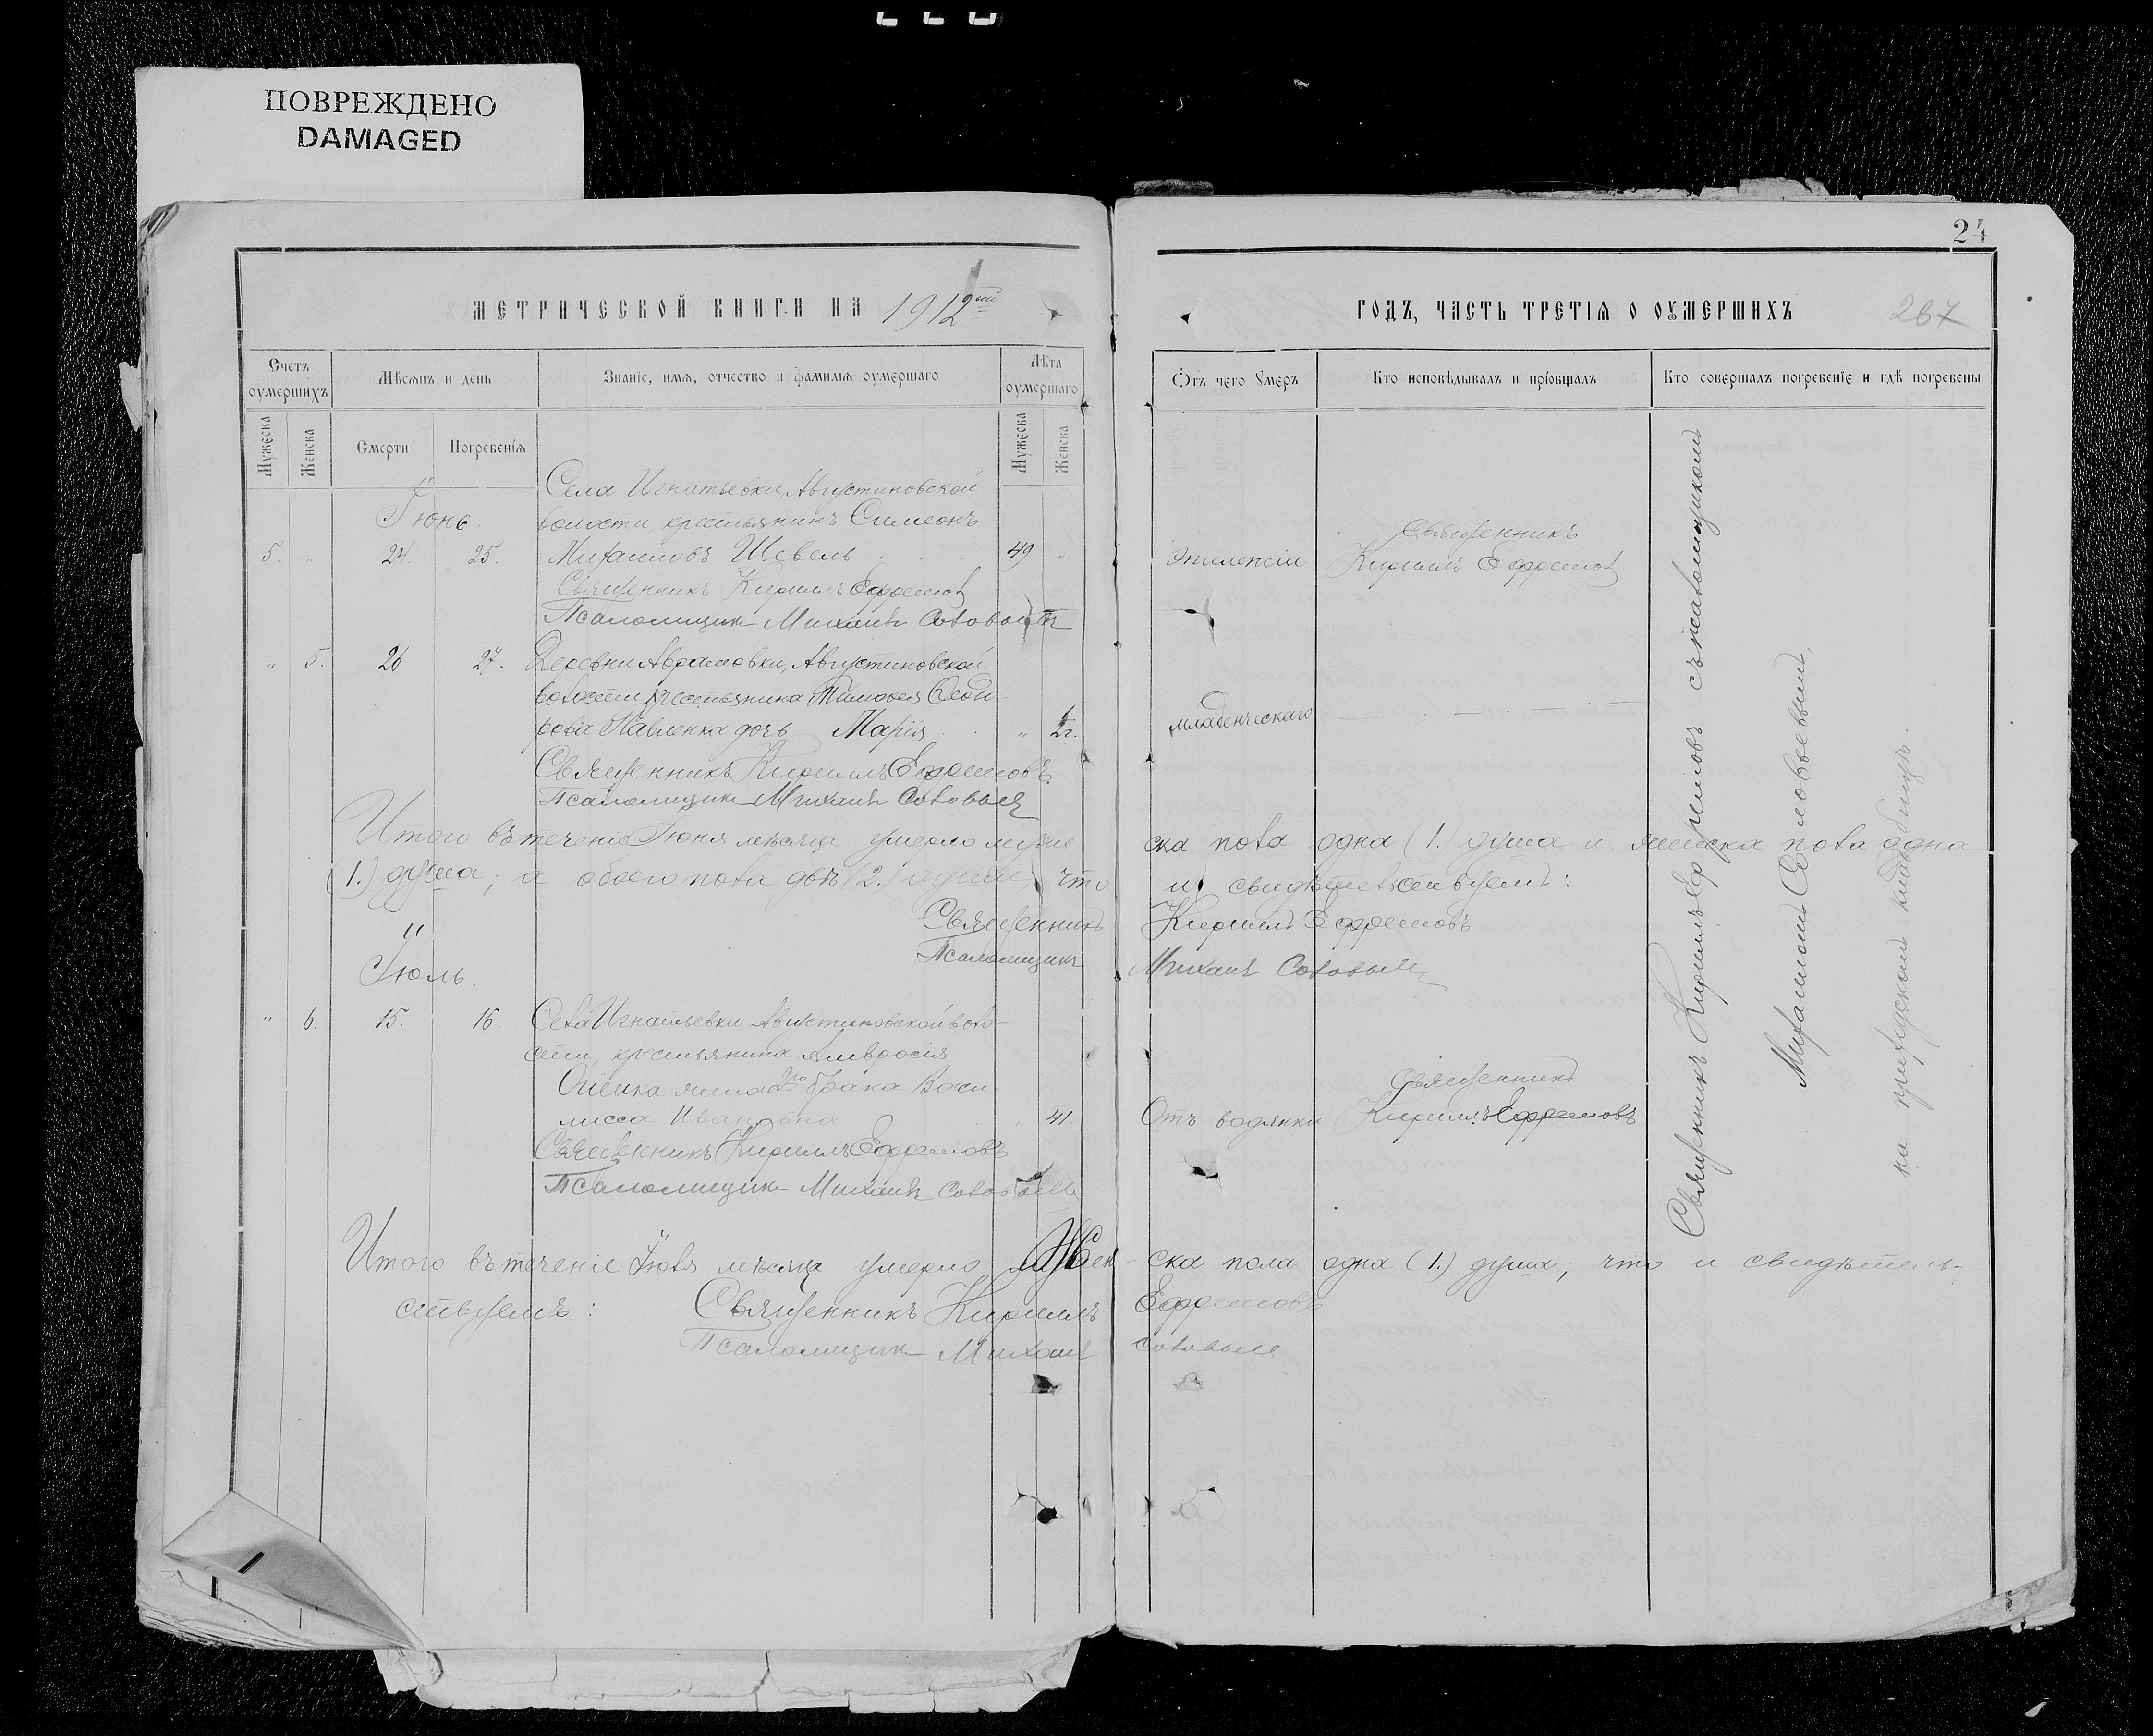 ПОВРЕЖДЕНО
DAMAGED
24
МЕТРИЧЕСКОЙ КНИГИ НА 1912ый
ГОДЪ, ЧАСТЬ ТРЕТІѦ О ОУМЕРШИХЪ
267
Счетъ оумершихъ
Мѣсяцъ и день
Званіе, имя, отчество и фамилія оумершаго
Лѣта оумершаго
Мужеска
Женска
Смерти
Погребенія
Мужеска
Женска
Отъ чего умеръ
Кто исповѣдывалъ и пріобщалъ
Кто совершалъ погребеніе и гдѣ погребены
Іюнь
Села Игнатьевки, Августиновской
волости, крестьянинъ Симеонъ
5. " 24. 25. Михаиловъ Шевель 49. "
Эпилепсіи
Священникъ
Кириллъ Ефремовъ
Священникъ Кириллъ Ефремовъ
Псаломщикъ Михаилъ Соловьевъ
" 5. 26 27. Деревни Аврамовки, Августиновской
волости крестьянина Тимофея Федо
рова Павленка дочь Марія " ½ г.
младенческаго
Священникъ Кириллъ Ефремовъ
Псаломщикъ Михаилъ Соловьевъ
Итого въ теченіе Іюня мѣсяца умерло муже
ска пола одна (1.) душа и женска пола одна
(1.) душа; а обоего пола двѣ (2.) души, что
и свидѣтельствуемъ:
Священникъ Кириллъ Ефремовъ
Псаломщикъ Михаилъ Соловьевъ
Іюль.
" 6. 15. 16 Села Игнатьевки Августиновской воло-
сти, крестьянина Амвросія
жена 2го брака Васи
лисса Ивановна " 41.
Отъ водянки
Священникъ
Кириллъ Ефремовъ
Священникъ Кириллъ Ефремовъ
Псаломщикъ Михаилъ Соловьевъ
Итого въ теченіе Іюля мѣсяца умерло Жен-
ска пола одна (1.) душа, что и свидѣтель-
ствуемъ: Священникъ Кириллъ Ефремовъ
Псаломщикъ Михаилъ Соловьевъ
Священникъ Кириллъ Ефремовъ съ псаломщикомъ
Михаиломъ Соловьевымъ,
на приходскомъ кладбищѣ.